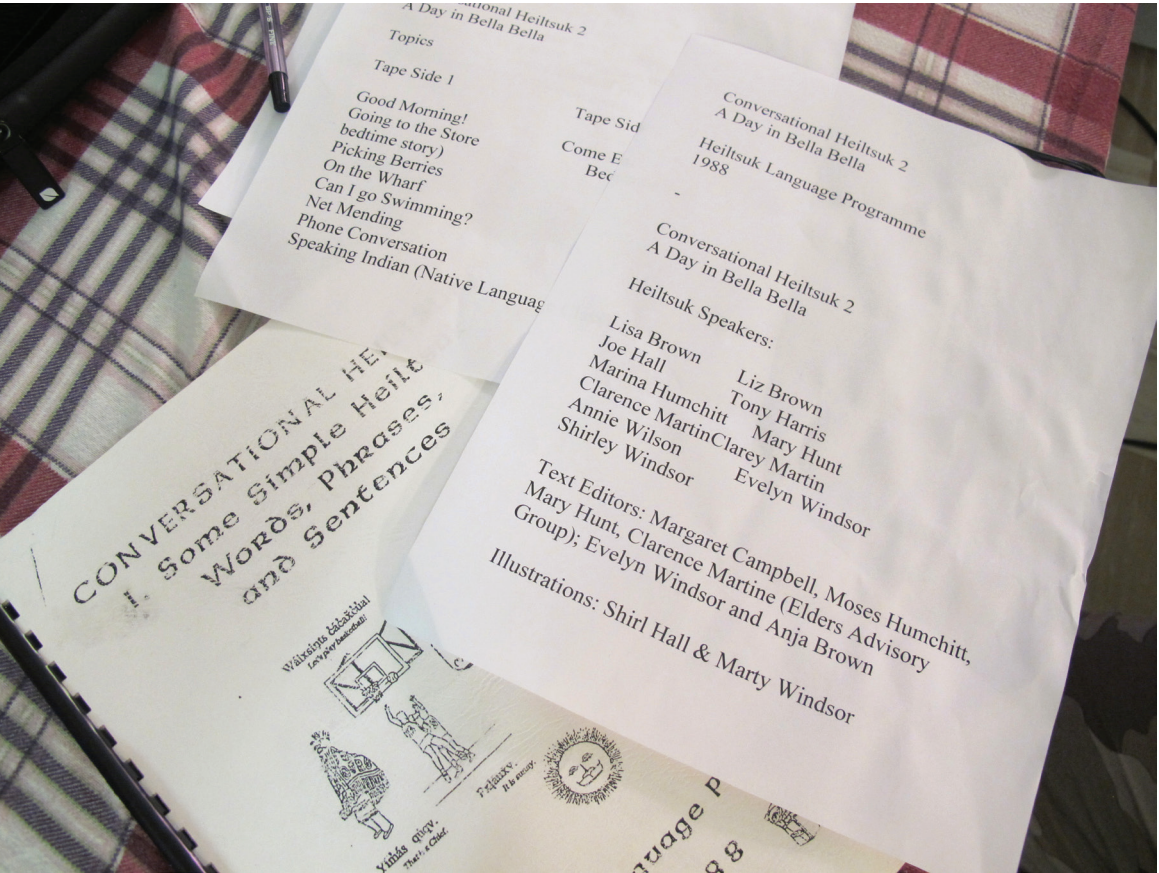 Conversational Heiltsuk 2
A Day in Bella Bella
Topics
Tape Side 1
Good Morning!
Going to the Store
bedtime story)
Picking Berries
On the Wharf
Can I go Swimming?
Net Mending
Phone Conversation
Speaking Indian (Native Languag
Tape Sid
Come E
Bed
Conversational Heiltsuk 2
A Day in Bella Bella
Heiltsuk Language Programme
1988
-
Conversational Heiltsuk 2
A Day in Bella Bella
Heiltsuk Speakers:
Lisa Brown Liz Brown
Joe Hall Tony Harris
Marina Humchitt Mary Hunt
Clarence MartinClarey Martin
Annie Wilson Evelyn Windsor
Shirley Windsor
Text Editors: Margaret Campbell, Moses Humchitt,
Mary Hunt, Clarence Martine (Elders Advisory
Group); Evelyn Windsor and Anja Brown
Illustrations: Shirl Hall & Marty Windsor
CONVERSATIONAL HEI
1. Some Simple Heilt
Words, Phrases,
and Sentences
Let's play basketball!
It is sunny.
That's a Chief.
uage P
88